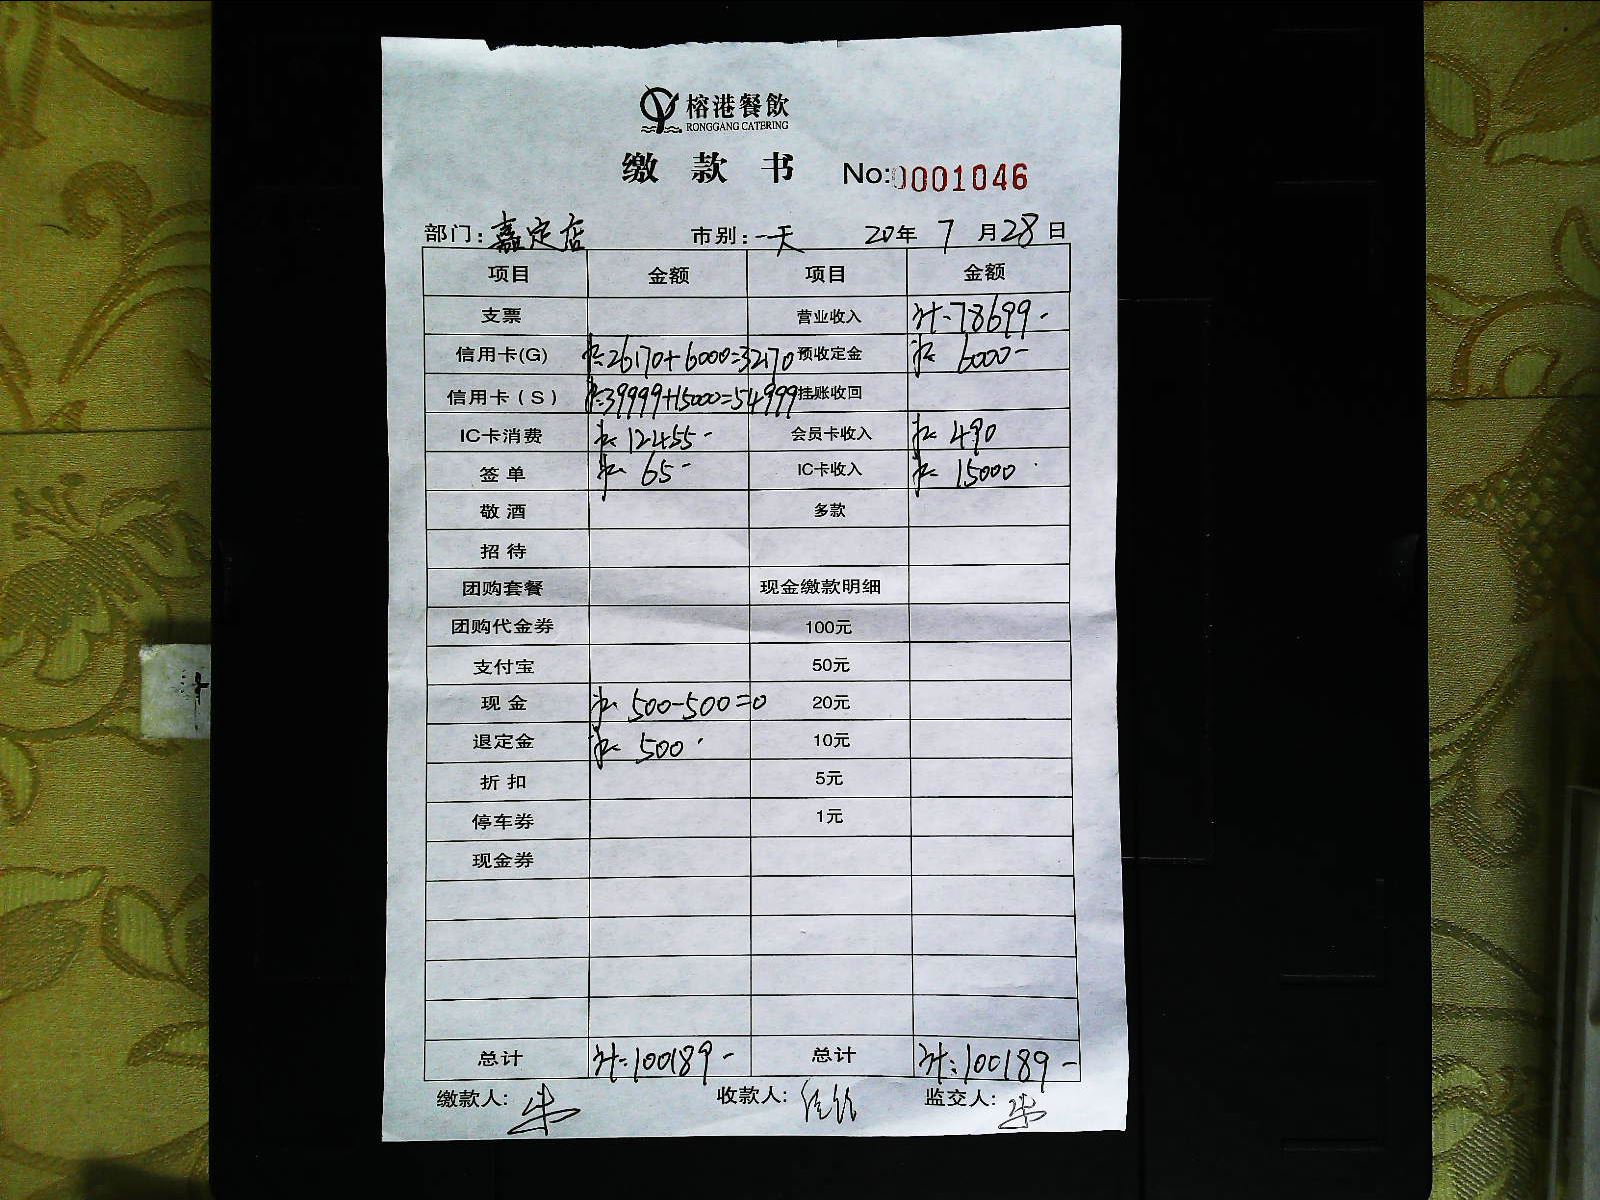 榕港餐飲
RONGGANG CATERING
缴款书 No:0001046
部门:嘉定店 市别:一天 20年7月28日
项目 金额 项目 金额
支票 营业收入 计:78699-
信用卡(G) 26170+6000=32170 预收定金 6000-
信用卡(S) 39999+15000=54999 挂账收回
IC卡消费 12455- 会员卡收入 490
签单 65- IC卡收入 15000
敬酒 多款
招待
团购套餐 现金缴款明细
团购代金券 100元
支付宝 50元
现金 500-500=0 20元
退定金 500 10元
折扣 5元
停车券 1元
现金券
总计 计:100189- 总计 计:100189-
缴款人: 收款人: 监交人: